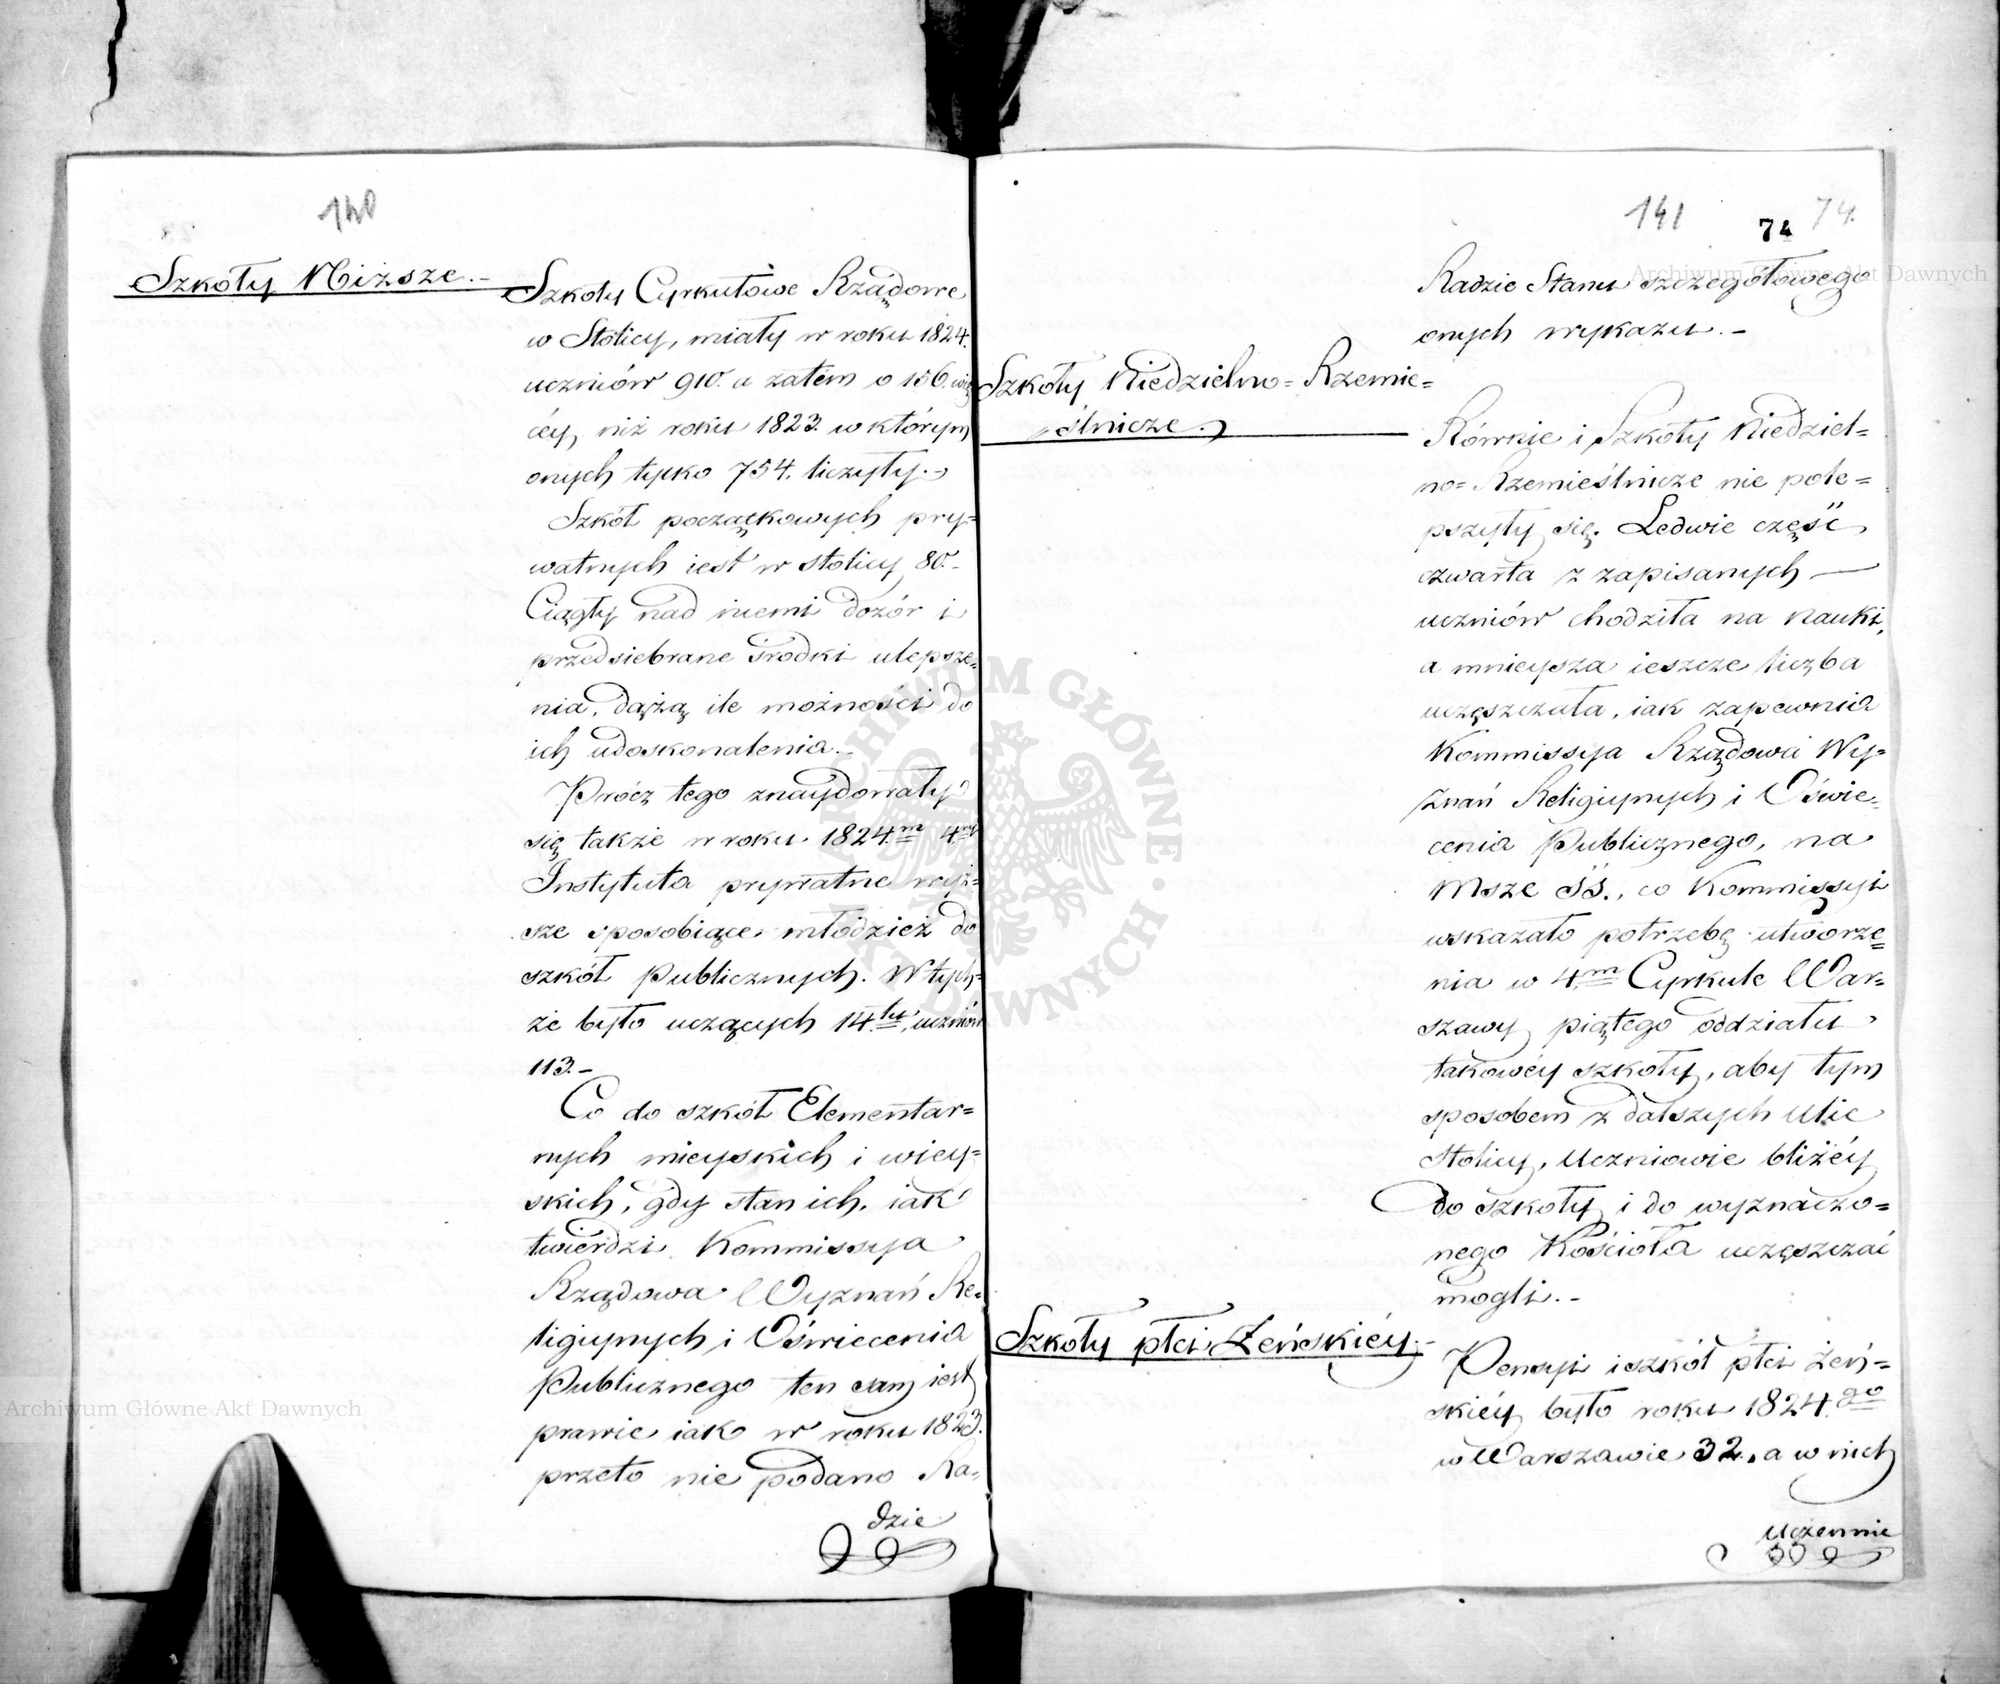 140
Szkoły Niższe.-
Szkoły Cyrkułowe Rządowe
w Stolicy, miały w roku 1824.
uczniów 910. a zatém o 156. wię
céy, niż roku 1823. w którym
onych tylko 754. liczyły.-
Szkół początkowych pry=
watnych iest w stolicy 80.-
Ciągły nad niemi dozór i
przedsiebrane środki ulepsze=
nia, dążą ile możności do
ich udoskonalenia.-
Prócz tego znaydowały
się także w roku 1824.m 4ry
Instytuta prywatne wyż=
sze sposobiące młódzież do
szkół Publicznych. W tych=
że było uczących 14.tu, uczniów
113.-
Co do szkół Elementar=
nych mieyskich i wiey=
skich, gdy stan ich, iak
twierdzi Kommissya
Rządowa Wyznań Re=
ligiynych i Oświecenia
Publicznego ten sam iest
prawie iak w roku 1823.
przeto nie podano Ra=
dzie
141
74
74.
Radzie Stanu szczegółowego
onych wykazu.-
Szkoły Niedzielno=Rzemie=
ślnicze.
Równie i Szkoły Niedziel=
no=Rzemieślnicze nie pole=
pszyły się. Ledwie część
czwarta z zapisanych —
uczniów chodziła na nauki,
a mnieysza ieszcze liczba
uczęszczała, iak zapewnia
Kommissya Rządowa Wy=
znań Religiynych i Oświe=
cenia Publicznego, na
Msze Śś., co Kommissyi
wskazało potrzebę utworze=
nia w 4.m Cyrkule War=
szawy piątego oddziału
takowéy szkoły, aby tym
sposobem z dalszych Ulic
Stolicy, Uczniowie bliżéy
do szkoły i do wyznaczo=
nego Kościoła uczęszczać
mogli.-
Szkoły płci Żeńskiéy.-
Pensyi i szkół płci żeń=
skiéy było roku 1824.go
w Warszawie 32., a w nich
Uczennic
Archiwum Główne Akt Dawnych
Archiwum Główne Akt Dawnych
ARCHIWUM GŁÓWNE AKT DAWNYCH